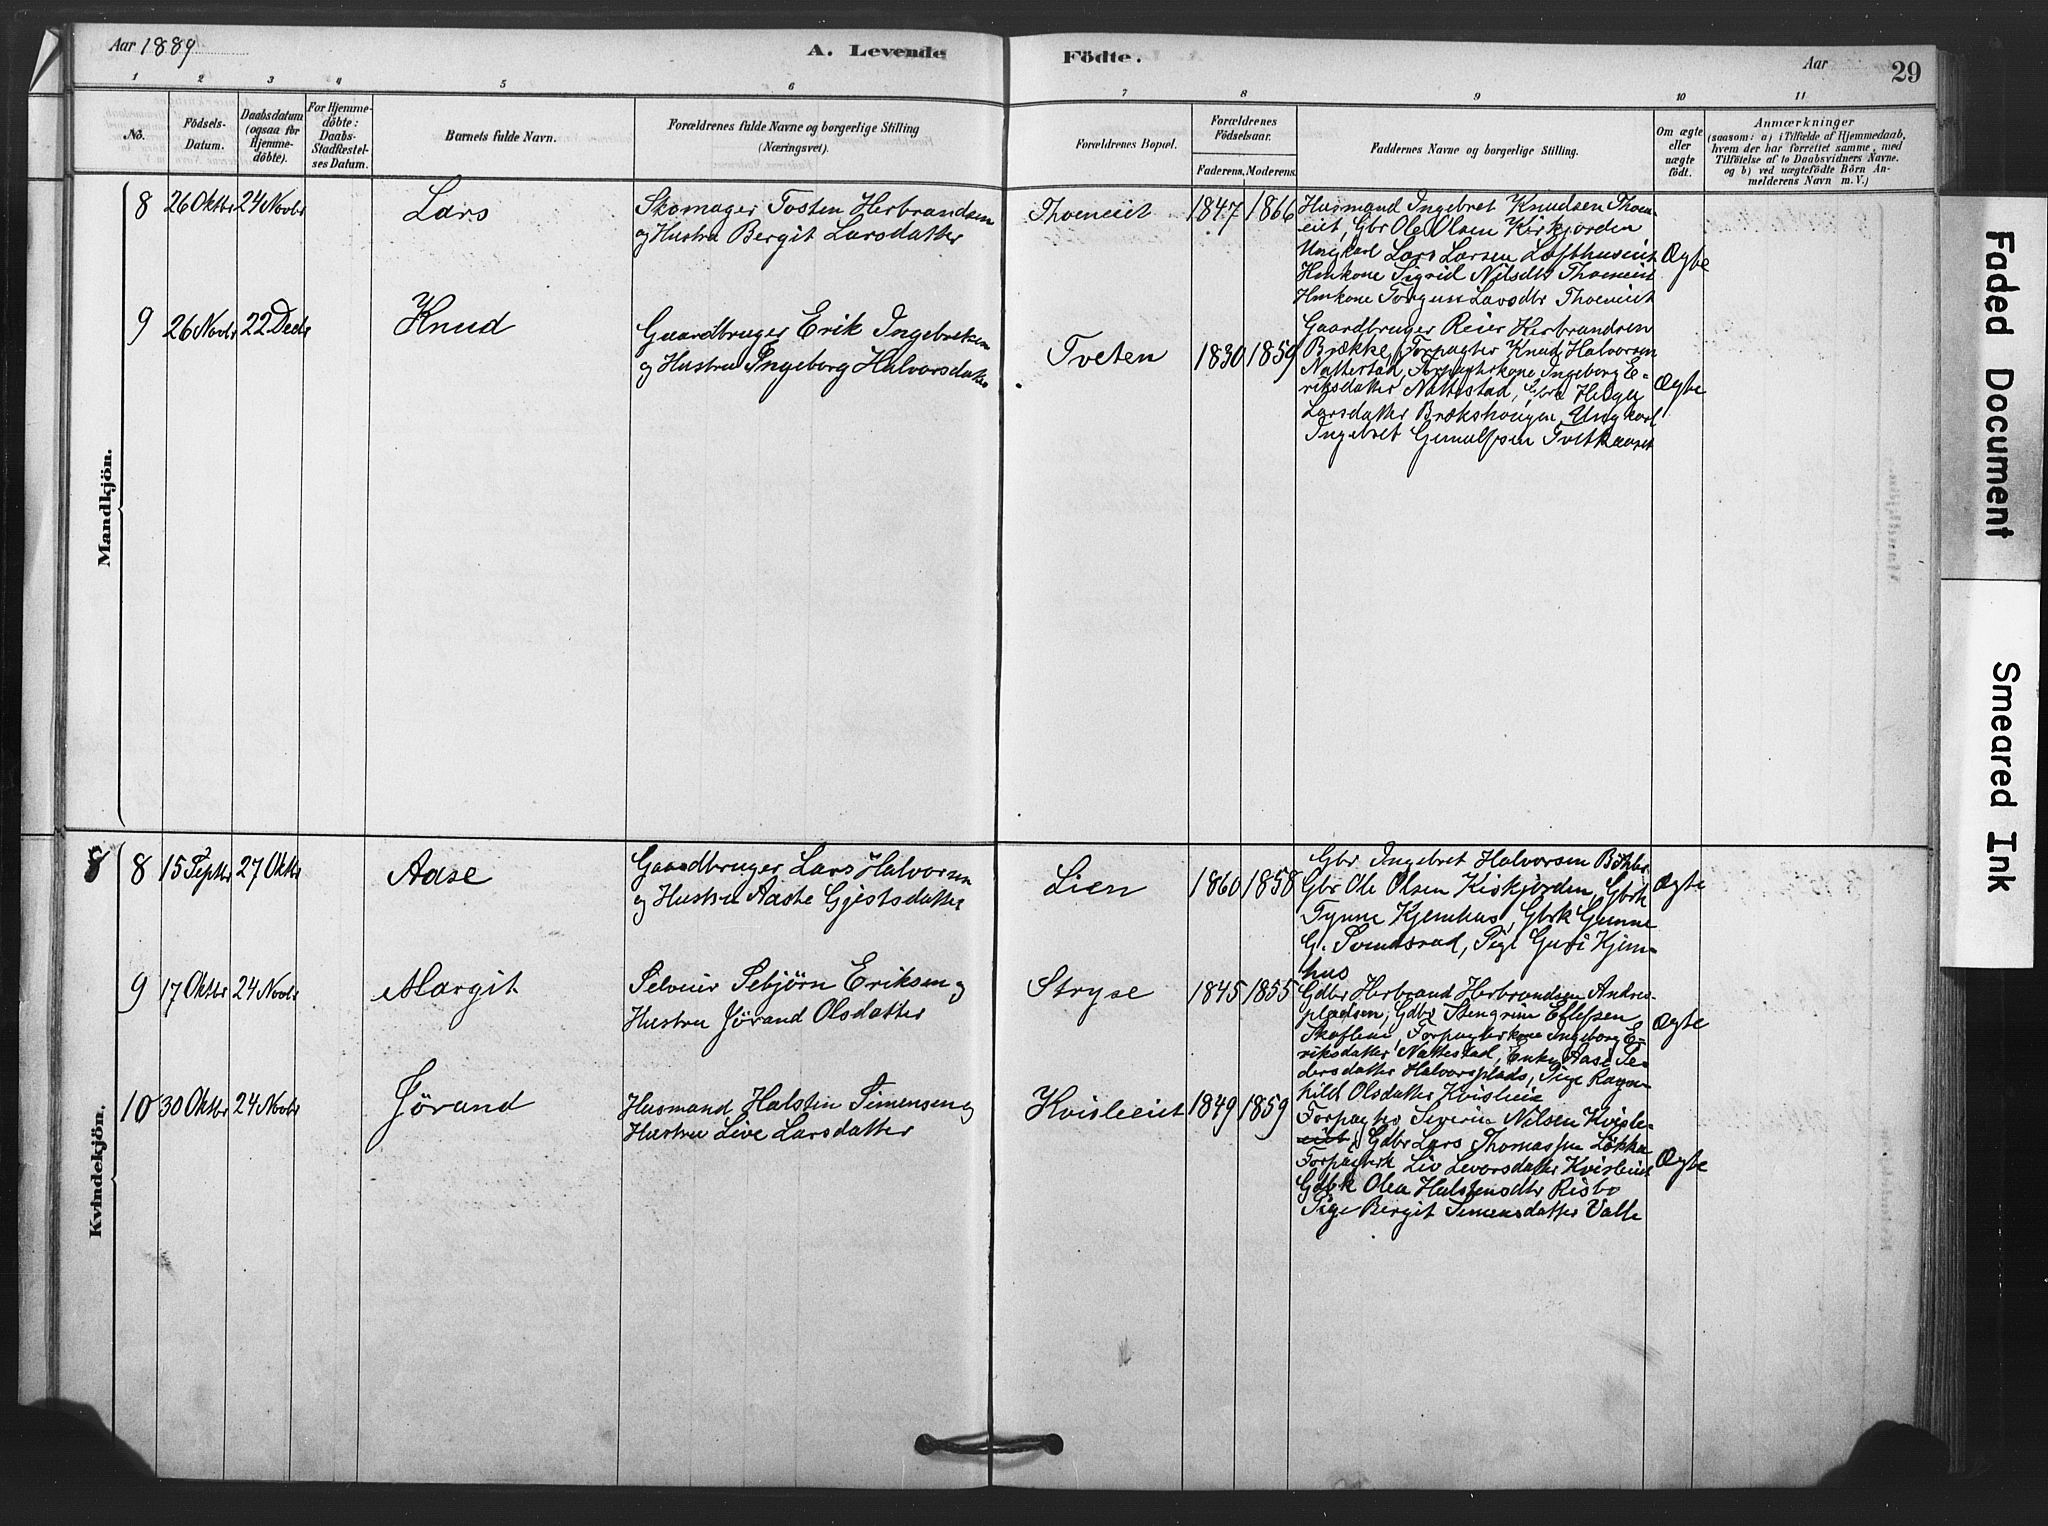 Aar 1889
A. Levende Födte.
Aar
29
1 2 3 4 5 6 7 8 9 10 11
No.
Födsels-Datum.
Daabsdatum (ogsaa for Hjemme-döbte).
For Hjemme-döbte: Daabs-Stadfæstel-ses Datum.
Barnets fulde Navn.
Forældrenes fulde Navne og borgerlige Stilling
(Næringsvei).
Forældrenes Bopæl.
Forældrenes Födselsaar.
Faderens. Moderens.
Faddernes Navne og borgerlige Stilling.
Om ægte eller uægte födt.
Anmærkninger
(saasom: a) i Tilfælde af Hjemmedaab,
hvem der har forrettet samme, med
Tilföielse af to Daabsvidners Navne.
og b) ved uægtefödte Börn An-
melderens Navn m. V.)
Mandkjön.
8 26 Oktbr 24 Novbr
Lars
Skomager Tosten Herbrandsen
og Hustru Bergit Larsdatter
Thoeneiet
1847 1866
Husmand Ingebret Knudsen Thoen-
eiet, Gbr Ole Olsen Kirkjorden
Ungkarl Lars Larsen Lofthuseiet
Hmkone Sigrid Nilsdtr Thoeneiet
Hmkone Torguns Larsdtr Thoeneiet
Ægte
9 26 Novbr 22 Decbr
Knud
Gaardbruger Erik Ingebretsen
og Hustru Ingeborg Halvorsdatter
Tveten
1830 1859
Gaardbruger Reier Herbrandsen
Brække, Forpagter Knud Halvorsen
Nattestad, Forpagterkone Ingeborg E-
riksdatter Nattestad, Gbrk Helga
Larsdatter Brækshaugen Ungkarl
Ingebret Gunulfsen Tvetkaaset
Ægte
Kvindekjön.
8 15 Septbr 27 Oktbr
Aase
Gaardbruger Lars Halvorsen
og Hustru Aaste Gjestsdatter
Lien
1860 1858
Gbr Ingebret Halvorsen
Gbr Ole Olsen Kiskjorden, Gbrk
Tynne Kjemhus, Gbrk Gunne
G. Svendsrud, Pige Guri Kjem-
hus
Ægte
9 17 Oktbr 24 Novbr
Margit
Selveier Sebjörn Eriksen og
Hustru Jörand Olsdatter
Stryse
1845 1855
Gdbr Herbrand Herbrandsen Andres-
pladsen, Gdbr Stengrim Ellefsen
Forpagterkone Ingeborg E-
riksdatter Nattestad, Enke Aase Pe-
dersdatter Halvorsplads, Pige Ragn-
hild Olsdatter Kvisleeie
Ægte
10 30 Oktbr 24 Novbr
Jörand
Husmand Halstin Simensen og
Hustru Live Larsdatter
Kvisleeiet
1849 1859
Forpagter Severin Nilsen Kvisle-
eiet, Gdbr Lars Thomassen Løkka
Forpagterk Liv Levorsdatter Kvisleeiet
Gdbk Olea Halstensdtr Risbo
Pige Bergit Simensdatter Valle
Ægte
Faded Document
Smeared Ink